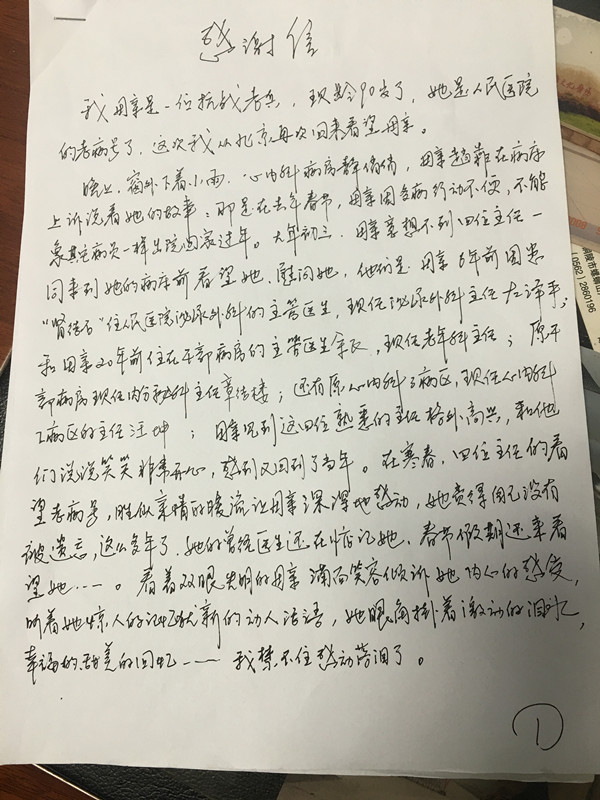 感谢信
我母亲是一位抗战老兵，现龄90岁了，她是人民医院
的老病号了，这次我从北京再次回来看望母亲。
晚上，窗外下着小雨，心内科病房静悄悄，母亲躺靠在病床
上诉说着她的故事：那是在去年春节，母亲因多病行动不便，不能
象其它病员一样出院回家过年。大年初三，母亲意想不到四位主任一
同来到她的病床前看望她、慰问她，他们是：母亲6年前因患
"肾结石"住人民医院泌尿外科的主管医生，现任泌尿外科主任左泽平；
和母亲20年前住在干部病房的主管医生余 ，现任老年科主任；原干
部病房现任内分泌科主任章 ；还有原心内科3病区，现任心内科
2病区的主任汪坤；母亲见到这四位熟悉的主任格外高兴，和他
们说说笑笑非常开心，感到又回到了当年。在寒春，四位主任的看
望老病号，胜似亲情的暖流让母亲深深地感动，她觉得自己没有
被遗忘，这么多年了，她的曾经医生还在惦记她，春节假期还来看
望她……。看着双眼失明的母亲满面笑容倾诉她内心的感受，
听着她惊人的记忆犹新的动人话语，她眼角挂着激动的泪水，
幸福的甜美的回忆……我禁不住感动落泪了。
1
铜陵市
(0562) 2860196